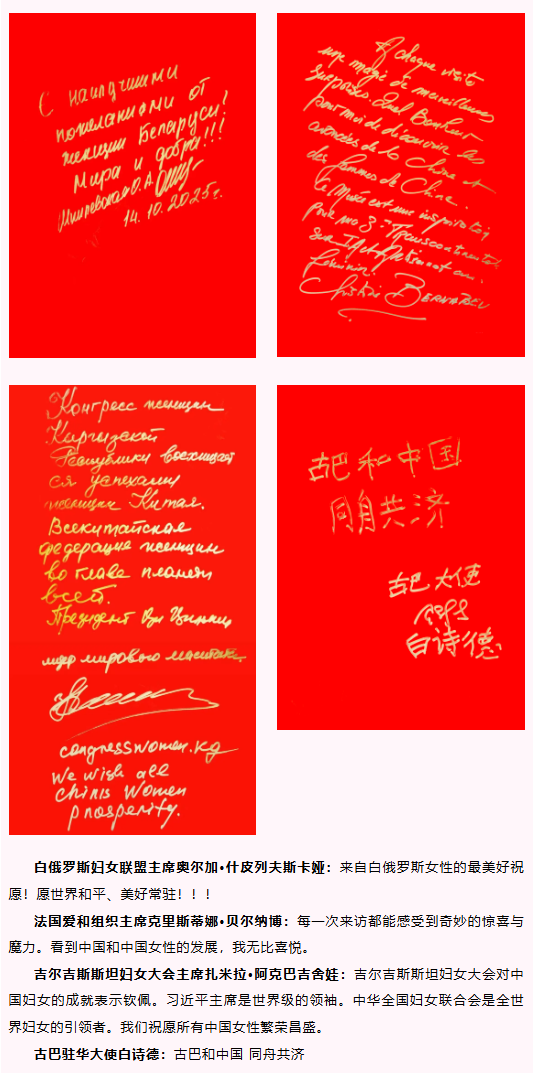 С наилучшими
пожеланиями от
женщин Беларуси!
Мира и добра!!!
Шпилевская О.А.
14.10.2025г.
A chaque visite
une magie de merveilleuses
surprises. Quel Bonheur
pour moi de découvrir les
avancées de la Chine et
des femmes de Chine.
Le Musée est une inspiration
pour
sur
Féminin.
BERNABEU
Конгресс женщин
Кыргызской
Республики восхищает
ся успехами
женщин Китая.
Всекитайская
федерация женщин
во главе планеты
всей.
Президент Си Цзиньпин
лидер мирового масштаба.
congresswomen.kg
We wish all
chinis Women
prosperity.
古巴和中国
同舟共济
古巴大使
白诗德
白俄罗斯妇女联盟主席奥尔加·什皮列夫斯卡娅：来自白俄罗斯女性的最美好祝
愿！愿世界和平、美好常驻！！！
法国爱和组织主席克里斯蒂娜·贝尔纳博：每一次来访都能感受到奇妙的惊喜与
魔力。看到中国和中国女性的发展，我无比喜悦。
吉尔吉斯斯坦妇女大会主席扎米拉·阿克巴吉舍娃：吉尔吉斯斯坦妇女大会对中
国妇女的成就表示钦佩。习近平主席是世界级的领袖。中华全国妇女联合会是全世
界妇女的引领者。我们祝愿所有中国女性繁荣昌盛。
古巴驻华大使白诗德：古巴和中国 同舟共济